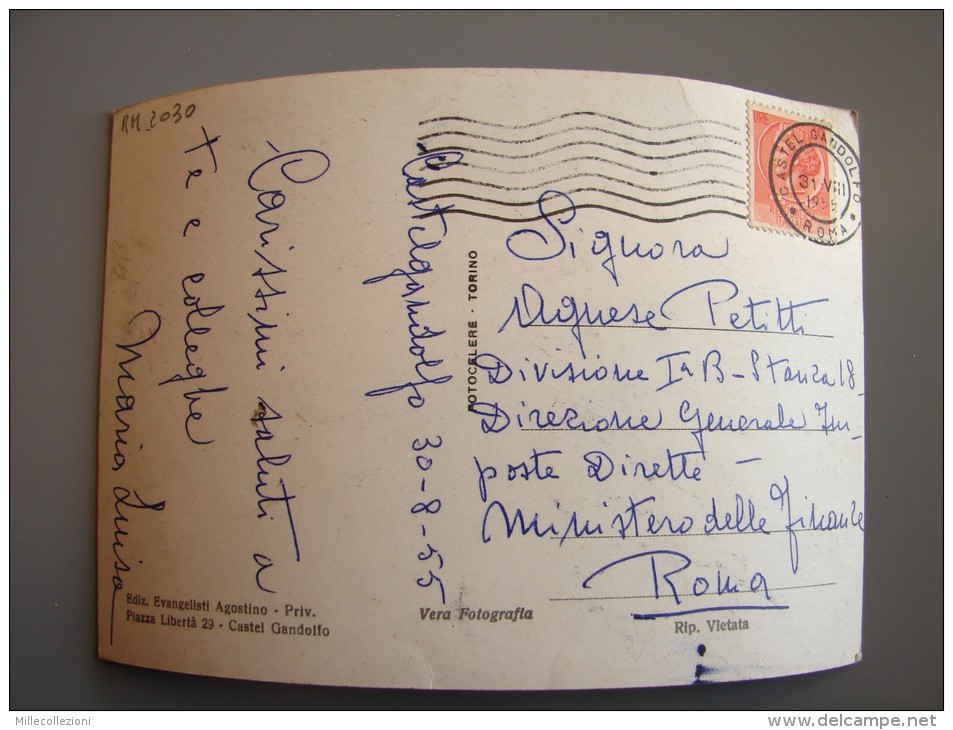 RM_2030
Castelgandolfo 30-8-55
Carissimi saluti a
te e colleghe
Maria Luisa
Signora
Agnese Petitti
Divisione Iª B - Stanza 18
Direzione Generale Im-
poste Dirette -
Ministero delle Finanze
Roma
FOTOCELERE - TORINO
LIRE
CASTEL GANDOLFO
31 VIII
1955
* ROMA *
Ediz. Evangelisti Agostino - Priv.
Piazza Libertà 29 - Castel Gandolfo
Vera Fotografia
Rip. Vietata
Millecollezioni
www.delcampe.net